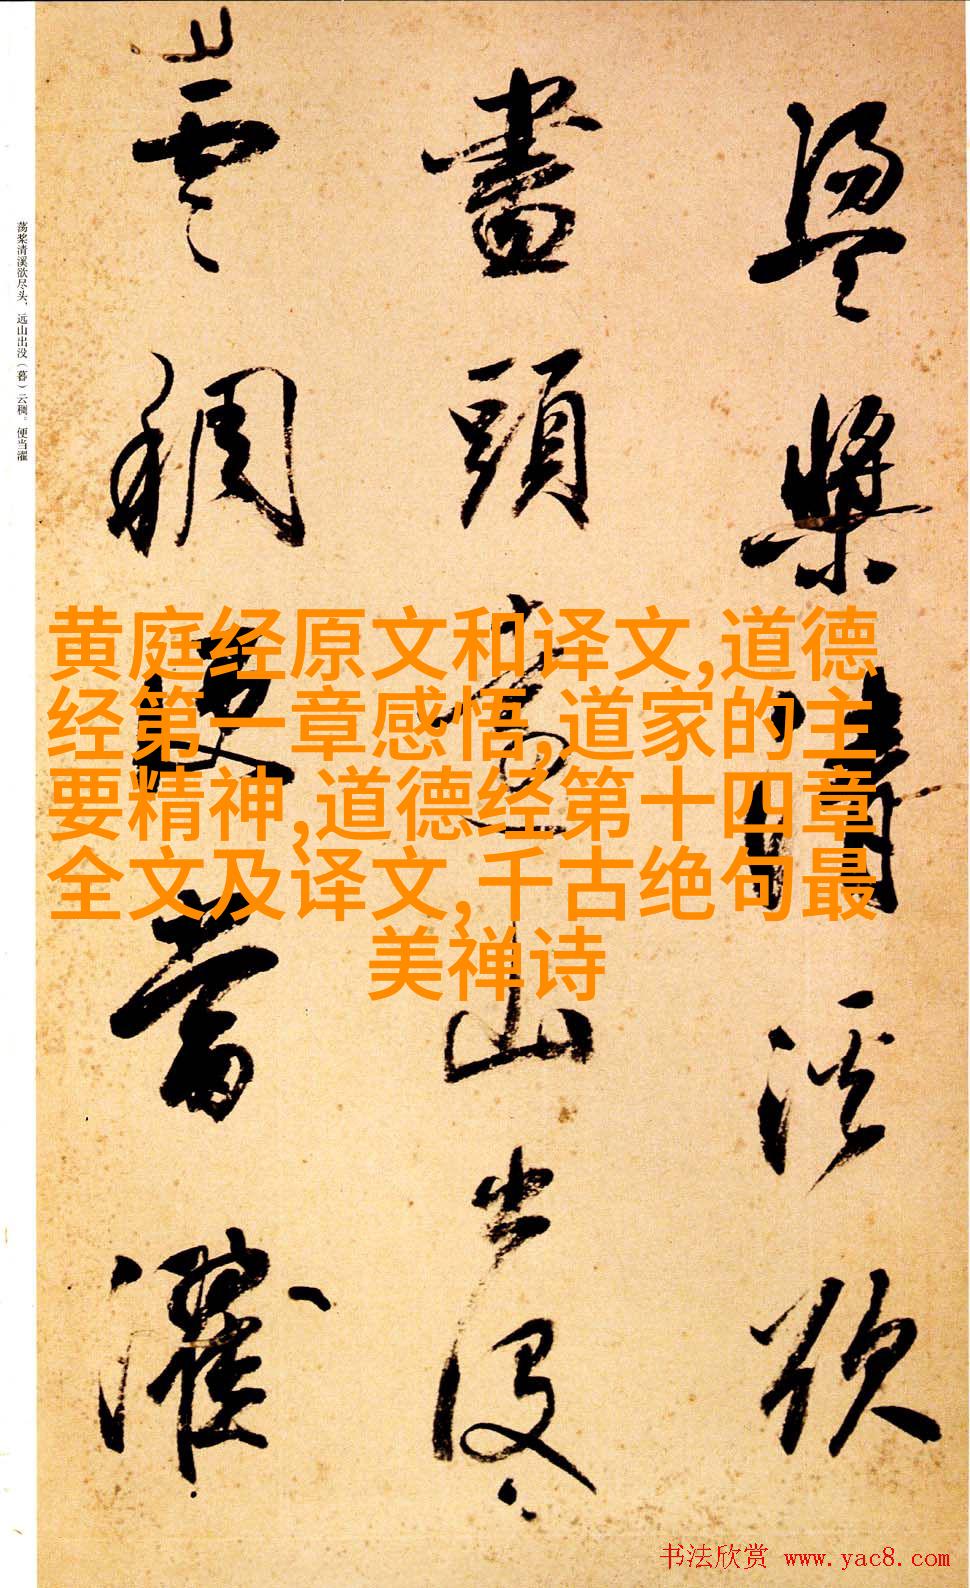 盪槳清溪欲
盡頭遠山出没
雲稠便當濯
荡桨清溪欲尽头，远山出没（暮）云稠。便当濯
黄庭经原文和译文,道德
经第一章感悟,道家的主
要精神,道德经第十四章
全文及译文,千古绝句最
美禅诗
书法欣赏 www.yac8.com